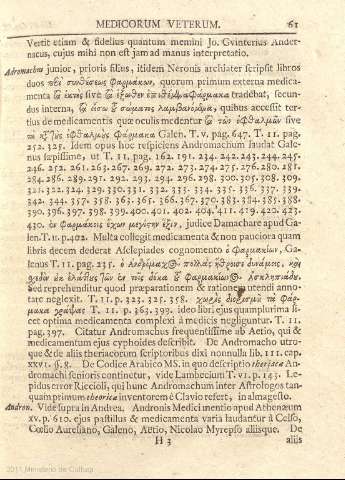 MEDICORUM VETERUM. 61
Vertit etiam & fidelius quantum memini Jo. Gvinterius Ander-
nacus, cujus mihi non est jam ad manus interpretatio.
Andromachus junior, prioris filius, itidem Neronis archiater scripsit libros
duos περὶ συνθέσεως φαρμάκων, quorum primum externa medica-
menta sive tradebat, secun-
dus interna, λαμβανόμενα, quibus accessit ter-
tius de medicamentis quæ oculis medentur τῶν ὀφθαλμῶν sive
φάρμακα Galen. T. v. pag. 647. T. 11. pag.
252. 325. Idem opus hoc respiciens Andromachum laudat Gale-
nus sæpissime, ut T. 11. pag. 162. 191. 234. 242. 243. 244. 245.
236. 252. 261. 263. 267. 269. 272. 273. 274. 275. 276. 280. 281.
284. 286. 289. 291. 292. 293. 294. 296. 298. 300. 305. 308. 309.
325. 322. 324. 329. 330. 331. 332. 333. 334. 335. 336. 337. 339.
342. 344. 357. 358. 363. 365. 366. 367. 370. 383. 384. 385. 388.
390. 396. 397. 398. 399. 400. 401. 402. 404. 411. 419. 420. 423.
430. ἐν φαρμάκοις ἔχων μεγίστην ἕξιν, judice Damachare apud Ga-
len. T. 11. p. 402. Multa collegit medicamenta & non pauciora quam
libris decem dederat Asclepiades cognomento ὁ φαρμακίων, Ga-
lenus T. 11. pag. 235. ὁ Ἀνδρόμαχος πολλὰς ἤθροισε δυνάμεις,
σχεδὸν ἐν τοῖς δέκα φαρμακίωνος Ἀσκληπιάδου.
sed reprehenditur quod præparationem & rationem utendi anno-
tare neglexit. T. 11. p. 323. 325. 358. χωρὶς διορισμοῦ τὰ φάρ-
μακα γράψας T. 11. p. 363. 399. ideo libri ejus quamplurima li-
cet optima medicamenta complexi à medicis negliguntur. T. 11.
pag. 397. Citatur Andromachus frequentissime ab Aetio, qui &
medicamentum ejus cyphoides describit. De Andromacho utro-
que & de aliis theriacorum scriptoribus dixi nonnulla lib. III. cap.
xxvi. §. 8. De Codice Arabico MS. in quo descriptio theriacæ An-
dromachi senioris continetur, vide Lambecium T. vi. p. 145. Le-
pidus error Riccioli, qui hunc Andromachum inter Astrologos tan-
quam primum theoricæ inventorem è Clavio refert, in almagesto.
Andron. Vide supra in Andrea. Andronis Medici mentio apud Athenæum
xv. p. 610. ejus pastillus & medicamenta varia laudantur à Celso,
Cœlio Aureliano, Galeno, Aetio, Nicolao Myrepso aliisque. De
H 3 aliis
2011 Ministerio de Cultura